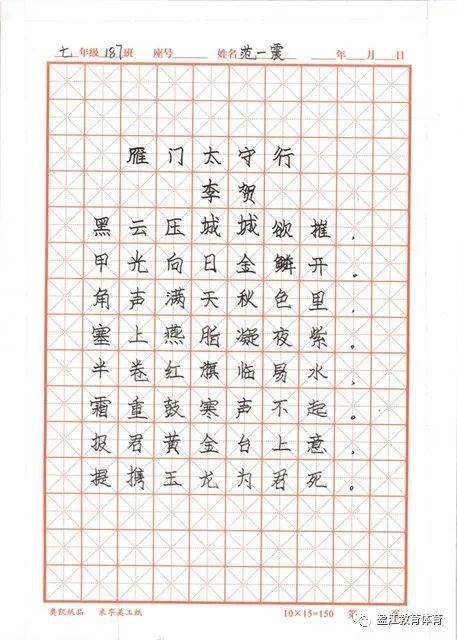 七年级187班 座号 姓名范一震 年 月 日
雁门太守行
李贺
黑云压城城欲摧，
甲光向日金鳞开。
角声满天秋色里，
塞上燕脂凝夜紫。
半卷红旗临易水，
霜重鼓寒声不起。
报君黄金台上意，
提携玉龙为君死。
奥凯纸品 米字美工纸 10×15=150 第 页
盈江教育体育